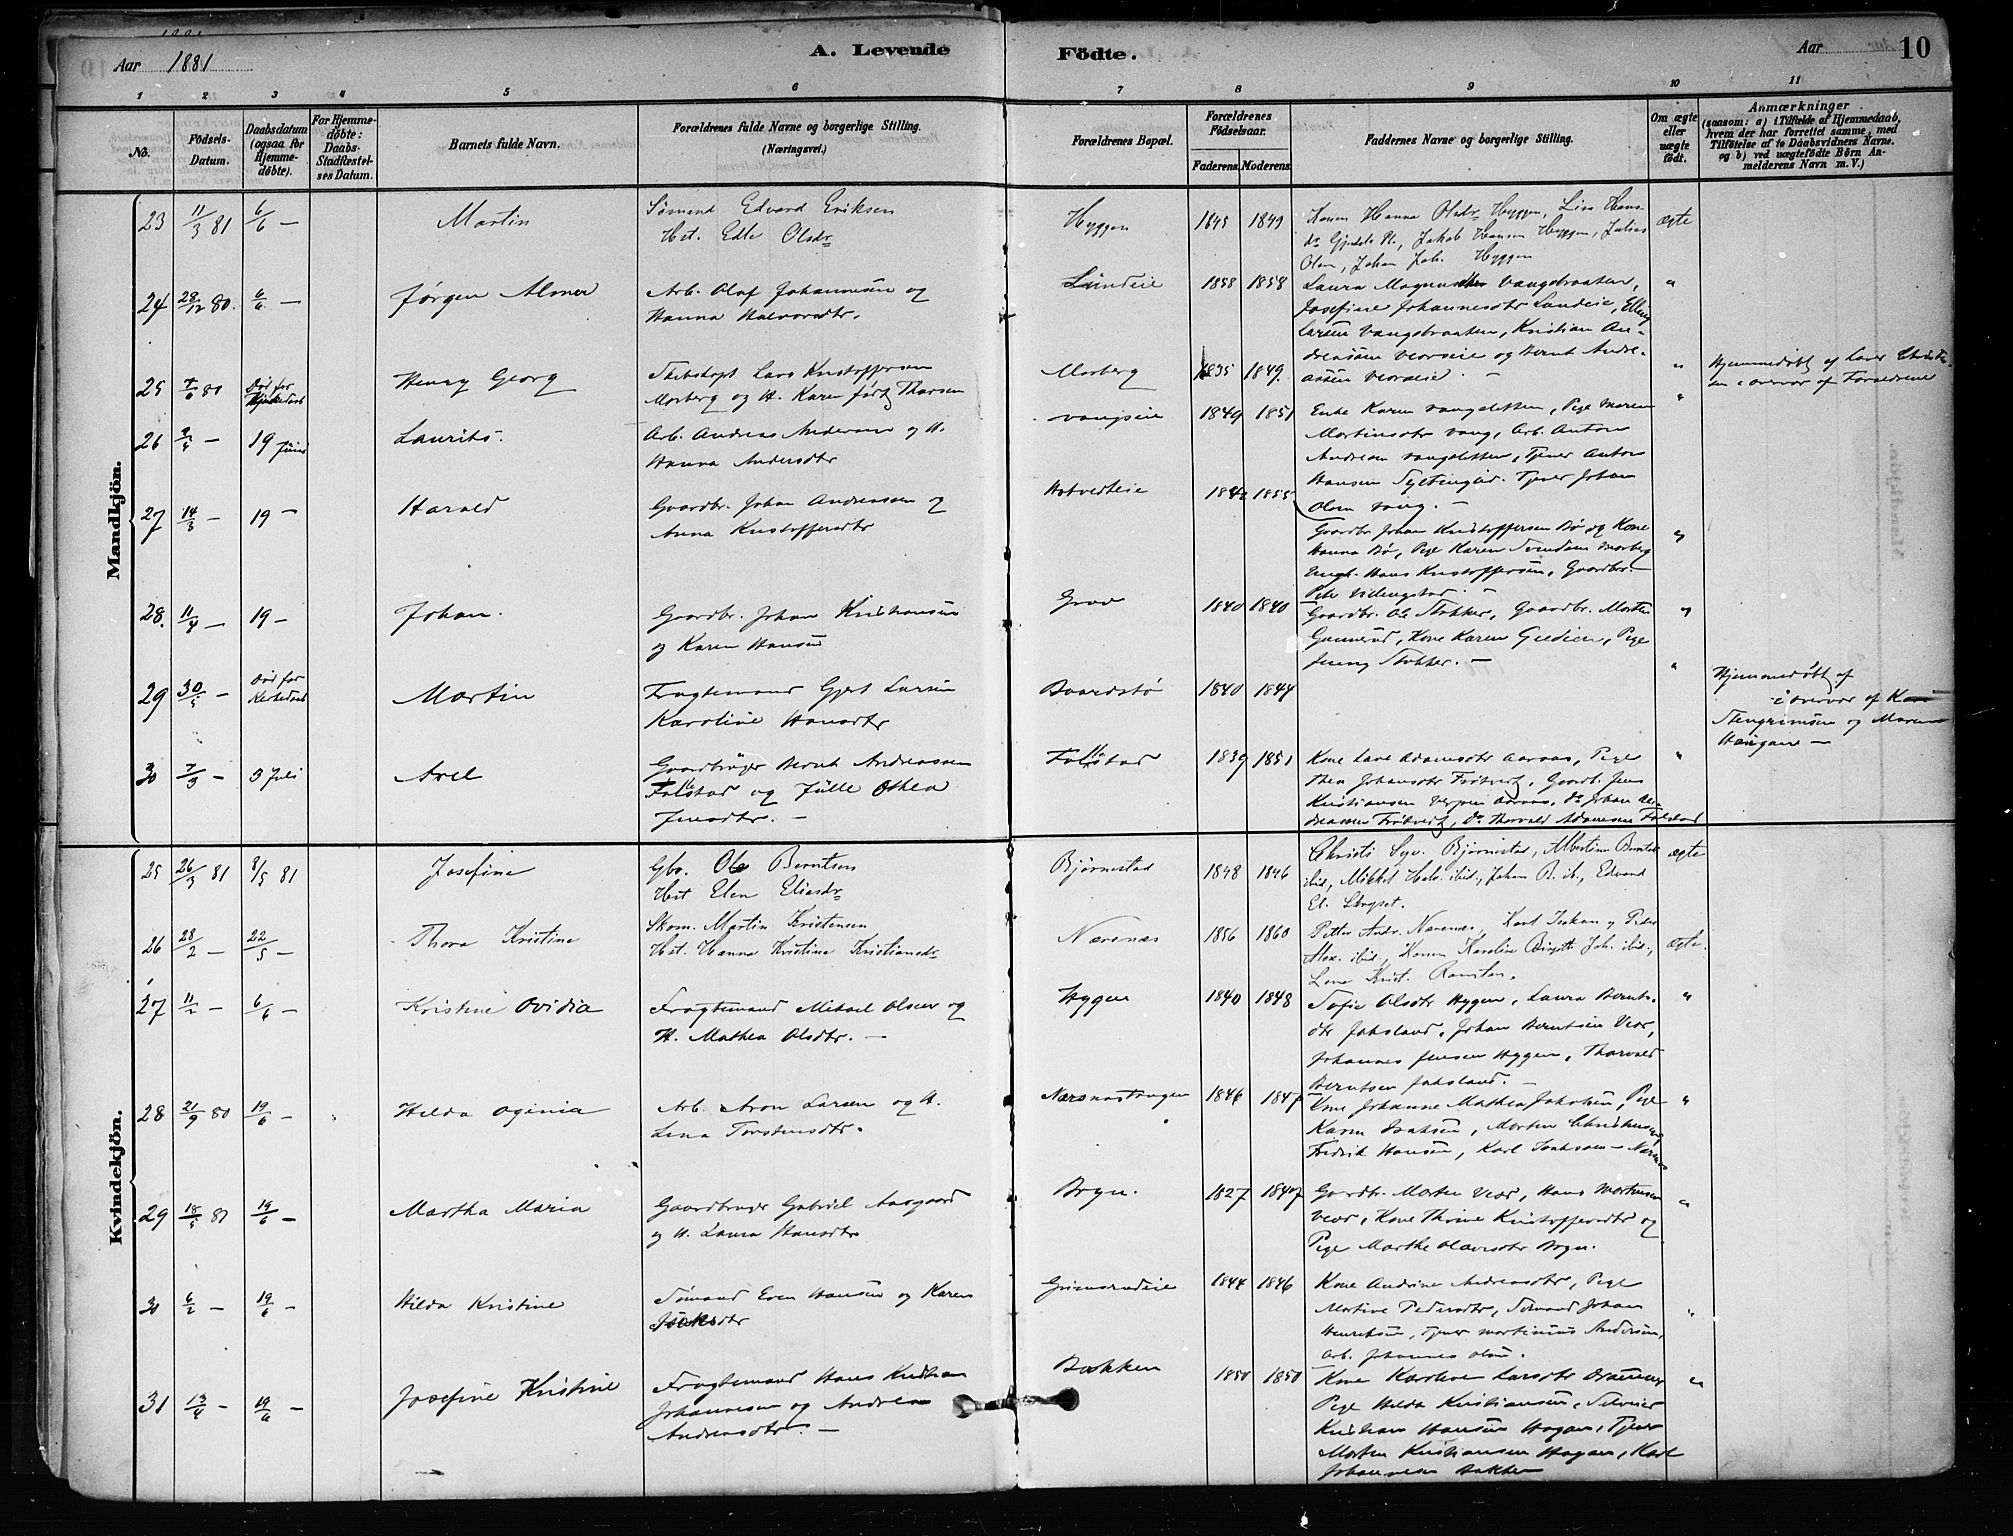 Aar 1881
A. Levende Födte.
Aar
10
1 2 3 4 5 6 7 8 9 10 11
No.
Fødsels-Datum.
Daabsdatum (ogsaa for Hjemme-døbte).
For Hjemme-døbte: Daabs-Stadfæstel-ses Datum.
Barnets fulde Navn.
Forældrenes fulde Navne og borgerlige Stilling. (Næringsvei.)
Forældrenes Bopæl.
Forældrenes Fødselsaar.
Faderens. Moderens.
Faddernes Navne og borgerlige Stilling.
Om ægte eller uægte født.
Anmærkninger
(saasom: a) i Tilfælde af Hjemmedaab,
hvem der har forrettet samme, med
Tilføielse af to Daabsvidners Navne,
og b) ved uægtefødte Börn An-
melderens Navn m. V.)
Mandkjön.
23 11/3 81 6/6 — Martin
Sømand Edvard Eriksen
Hst. Edle Olsdr
Hyggen 1845 1849
Konen Hanna Olsdr Hyggen, Lise Hans-
dr Gjendals Pl., Jakob Hansen Hyggen, Julius
Olsn, Johan Joh. Hyggen
ægte
24 28/12 80. 6/6 — Jørgen Almer
Arb. Olaf Johannesen og
Hanna Halvorsdtr.
Lundeie 1858 1858
Laura Magnusdtr Vangsbraaten,
Josefine Johannesdtr Lundeie, Elling
Larsen Vangsbraaten, Kristian An-
dreassen Veorseie og Bernt Andre-
assen Veorseie. —
"
25 7/6 80 Død før Kirkedaab Henry Georg
Skibskapt Lars Kristoffersen
Morberg og H. Karen født Thorsen
Morberg 1835 1849.
"
Hjemmedøbt af Laver
i overvær af Forældrene
26 2/5 — 19 Juni Laurits.
Arb. Andreas Andersen og H.
Hanna Andersdtr
Vangseie 1849 1851
Enke Karen Vangsletten, Pige Maren
Martinsdtr Vang, Arb. Anton
Andresen Vangsletten, Tjener Anton
Hansen Tjener Johan
Olsen Vang. —
"
27 14/3 — 19 — Harald
Gaardbr. Johan Andreassen og
Anna Kristoffersdtr
Hotvedteie 1842 1855
Gaardbr. Johan Kristoffersen Bø og Kone
Hanna Bø, Pige Karen Svendsen Morberg
Ungk. Hans Kristoffersen, Gaardbr.
"
28. 11/4 — 19 — Johan.
Gaardbr. Johan Kristiansen
og Karen Hansen
Grav 1840 1840
Gaardbr. Ole Stokker, Gaardbr. Morten
Gunnerud, Kone Karen Pige
Jenny Stokker. —
"
29 30/5 — Død før Kirkedaab Martin
Fragtemand Gjert Larsen
Karoline Hansdtr
Baardstø 1840 1844
"
Hjemmedøbt af
i overvær af
Stengrimsen og Maren
Haugane —
30 7/3 — 3 Juli Axel
Gaardbruger Bernt Andreassen
Follestad og Jülle Othea
Jensdtr. —
Follestad 1839 1851
Kone Lave Adamsdtr Aaraas, Pige
Thea Johansdtr Frøtvedt, Gaardb. Jens
Kristiansen Aaraas, do Johan An-
dreassen Frøtvedt, do Thorvald Adamsen Follestad
"
Kvindekjön.
25 26/3 81 8/5 81 Josefine
Gbr. Ole Berntsen
Hst Elen Eliasdr
Bjørnestad 1848 1846
Christi Syv. Bjørnestad, Albertine Berntsd
ibid, Mikkel Halv. ibid., Johan B. ib., Edvard
El.
ægte
26 28/2 — 22/5 — Thora Kristine
Skom. Martin Kristensen
Hst. Hanna Kristine Kristiansdr
Nærsnæs 1856 1860
Petter Andr. Nærsnæs, Karl Isaksn og Peder
Alex. ibid, Konen Karoline Birgitte Joh. ibid.,
Lene Krist. Ramsten.
ægte.
27 11/2 — 6/6 — Kristine Ovidia
Fragtemand Mikael Olsen og
H. Mathea Olsdtr. —
Hyggen 1840 1848
Sofie Olsdtr Hyggen, Laura Bernts-
dtr Jaksland, Johan Berntsen Veor,
Johannes Jensen Hyggen, Thorvald
Berntsen Jaksland. —
"
28 21/9 80 19/6 — Hilda Oginia
Arb. Aron Larsen og H.
Lena Torstensdtr.
Nærsnestangen 1846 1847
Kone Johanne Mathea Jakobsen, Pige
Karen Isaksen, Morten Christensen,
Fredrik Hansen, Karl Isaksen — Nærsnes
"
29 18/5 81 19/6 — Martha Maria
Gaardbruger Gabriel Aasgaard
og H. Laura Hansdtr
Bryn. 1827 1847
Gaardbr. Morten Veor, Hans Mortensen
Veor, Kone Thrine Kristoffersdtr og
Pige Marthe Olavesdtr Bryn.
"
30 6/2 — 19/6 — Hilda Kristine
Sømand Even Hansen og Karen
Isaksdtr
Grimsrudeie 1844 1846
Kone Andrine Andreasdtr, Pige
Martine Pedersdtr, Sømand Johan
Henriksen, Tjener Martinius Andersen,
Arb. Johannes Olsen.
"
31 13/4 — 19/6 — Josefine Kristine
Fragtemand Hans Kristian
Johannesen og Andrea
Andreasdtr. —
Bakken 1850 1850
Kone Karoline Larsdtr
Pige Hilda Kristiansen,
Kristian Hansen Hagan, Tjener
Morten Kristiansen Hagan, Karl
Johannesen Bakken
"